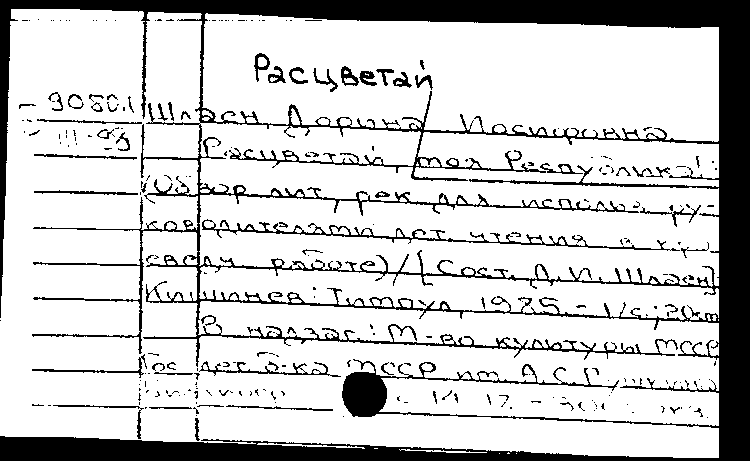 Расцветай
90501 Шлаен, Дорина Иосифовна.
III-93 Расцветай, моя Республика!:
(Обзор лит., рек. для использ. ру-
ководителями дет. чтения в
работе) / [Сост. Д. И. Шлаен]
Кишинев: Тимпул, 1985. - 17с.; 20см
В надзаг.: М-во культуры МССР,
Гос. дет. б-ка МССР им. А. С. Пушкина
с. 14-17. -